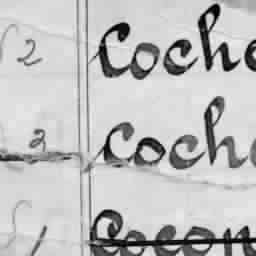 2 Coche
2 Coch
1 Cocon